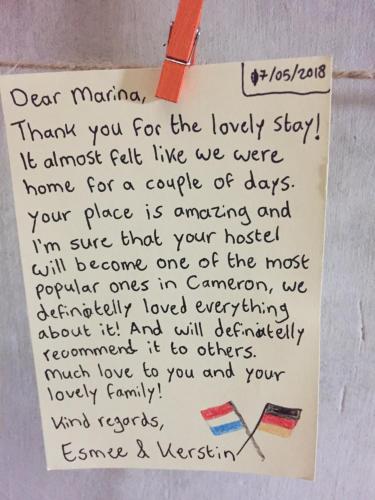 07/05/2018
Dear Marina,
Thank you for the lovely stay!
It almost felt like we were
home for a couple of days.
your place is amazing and
I'm sure that your hostel
will become one of the most
popular ones in Cameron, we
definitelly loved everything
about it! And will definitelly
recommend it to others.
Much love to you and your
lovely family!
Kind regards,
Esmee & Kerstin